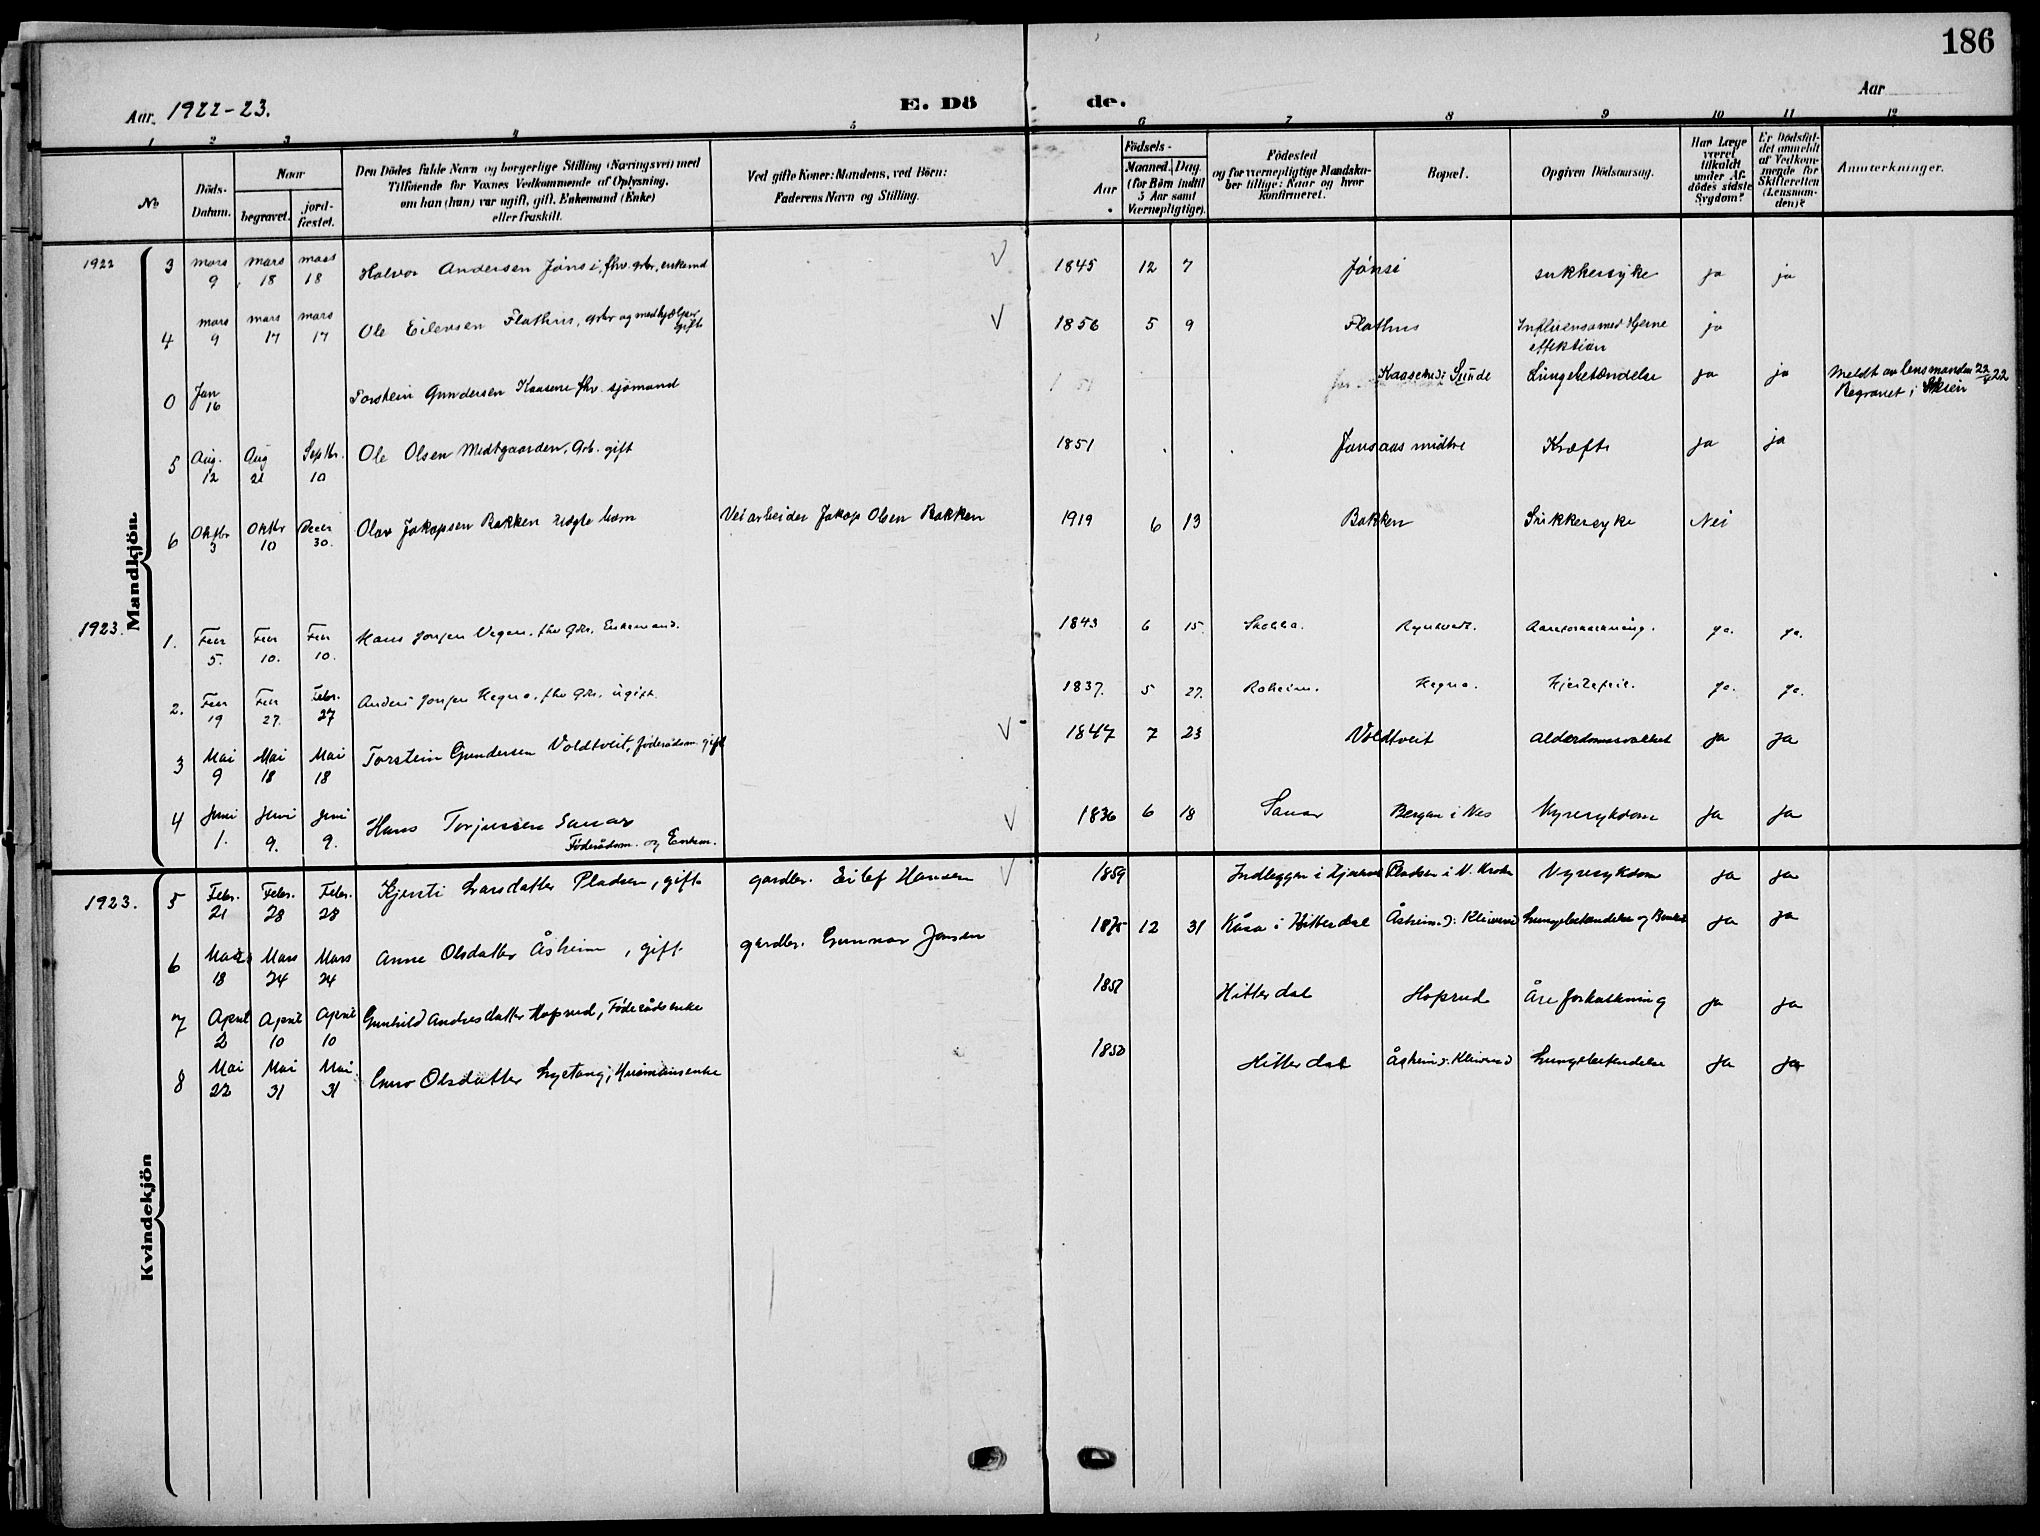 186
Aar. 1922-23.
E. Dö de.
Aar
1 2 3 4 5 6 7 8 9 10 11 12
No
Döds-Datum.
Naar
begravet.
jord-fæstet.
Den Dödes fulde Navn og borgerlige Stilling (Næringsvei) med
Tilföiende for Voxnes Vedkommende af Oplysning,
om han (hun) var ugift, gift, Enkemand (Enke)
eller fraskilt.
Ved gifte Koner: Mandens, ved Börn:
Faderens Navn og Stilling.
Födsels-
Aar
Maaned. Dag
(for Börn indtil
5 Aar samt
Værnepligtige).
Födested
og for værnepligtige Mandska-
ber tillige: Naar og hvor
konfirmeret.
Bopæl.
Opgiven Dödsaarsag.
Har Læge
været
tilkaldt
under Af-
dödes sidste
Sygdom?
Er Dödsfal-
det anmeldt
af Vedkom-
mende for
Skifteretten
(Lensman-
den)?
Anmærkninger.
Mandkjön.
1922 3 mars 9 mars 18 mars 18 Halvor Andersen Jönsi, fhv. gbr., enkemd 1845 12 7 Jönsi sukkersyke ja ja
4 mars 9 mars 17 mars 17 Ole Eilevsen Flathus, gbr og medhjælper gift 1856 5 9 Flathus Influensa med Hjerne ja
affektion
0 Jan 16 Torstein Gundersen Kaasene fhv. sjömand Kaasene i Sunde Lungebetændelse ja ja Meldt av lensmanden 22/22
Begravet i Skien
5 Aug. 12 Aug 21 Septbr. 10 Ole Olsen Midtgaarden, Arb. gift 1851 Jonsaas midtre Kræft ja ja
6 Oktbr 3 Oktbr 10 Decer 30. Olav Jakopsen Bakken ægte barn Veiarbeider Jakop Olsen Bakken 1919 6 13 Bakken Sukkersyke Nei
1923. 1. Feb 5. Feb 10. Feb 10. Hans Jonsen Vegen, fhv Gbr, Enkemand. 1843 6 15. Aareforkalkning. ja. ja.
2. Feb 19 Feb 27. Febr. 27 Anders Jonsen Hegna, fhv Gbr, ugift. 1837. 5 27. Roheim. Hegna. Hjertefeil. ja. ja.
3 Mai 9 Mai 18 Mai 18 Torstein Gundersen Voldtveit, föderådsm. gift 1847 7 23 Voldtveit Alderdomssvakhet ja ja
4 Juni 1. Juni 9. Juni 9. Hans Torjussen Sanar 1836 6 18 Sanar Bergan i Nes Nyresykdom ja ja
Föderådsm. og Enkem.
Kvindekjön
1923. 5 Febr. 21 Febr. 28 Febr. 28 Kjersti Larsdatter Pladsen, gift gardbr. Eilef Hansen 1859 Indleggen i Pladsen i N. Nyresykdom ja ja
6 Mars 18 Mars 24 Mars 24 Anne Olsdatter Åsheim, gift gardbr. Gunnar Jonsen 1875 12 31 Kåsa i Hitterdal Åsheim Lungebetændelse og ja ja
7 April 2 April 10 April 10 Gunhild Andersdatter Hoprud, Föderådsenke Hitterdal Hoprud Åreforkalkning ja ja
8 Mai 22 Mai 31 Mai 31 Guro Olsdatter Lyctang, Husmannsenke 1850 Hitterdal Åsheim Lungebetændelse ja ja